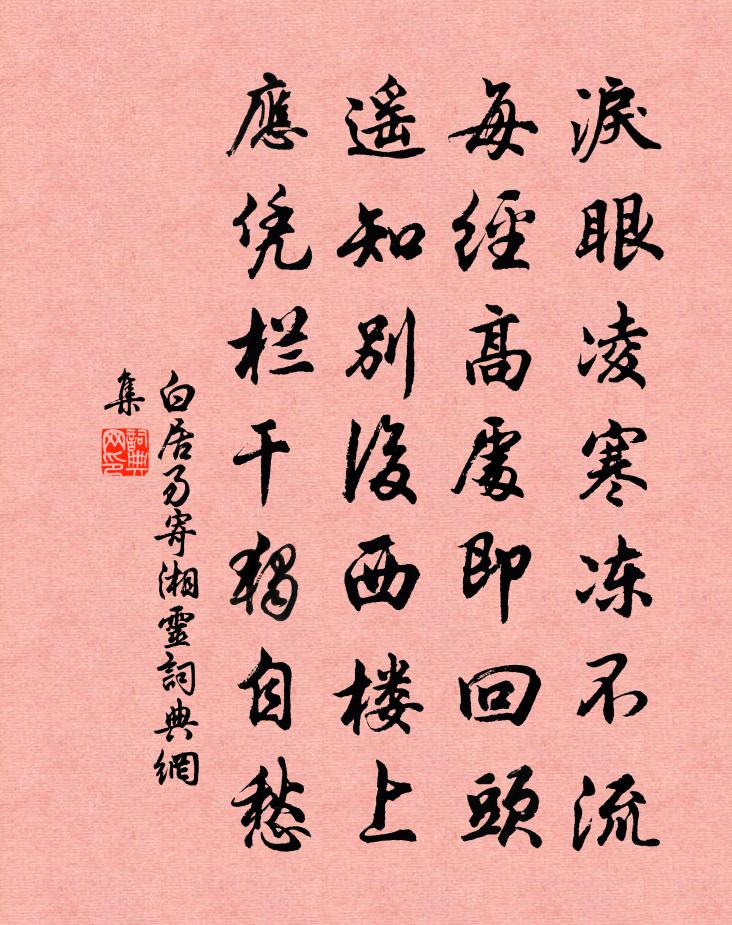 淚眼凌寒冻不流
每經高處即回頭
遥知别後西楼上
應凭栏干獨自愁
白居易寄湘靈詞典網
集
詞典
网印